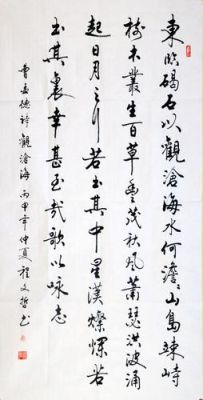 東临碣石以觀滄海水何澹々山島竦峙
樹木叢生百草豐茂秋風蕭瑟洪波涌
起日月之行若出其中星漢燦爛若
出其裏幸甚至哉歌以詠志
曹孟德詩觀滄海丙申年仲夏程文哲书